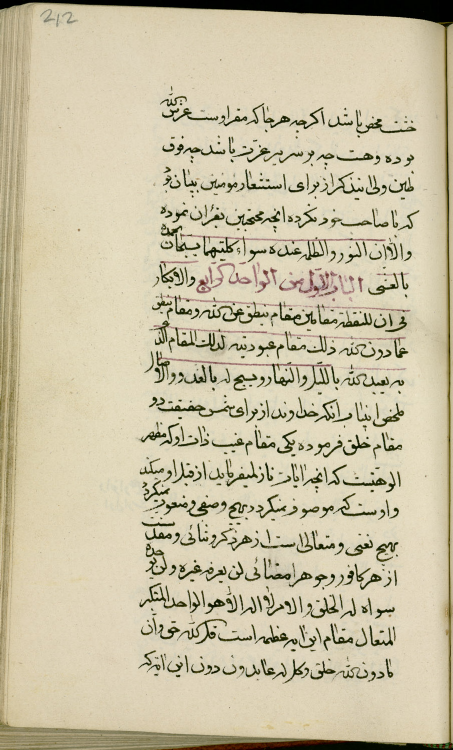 212
خشت محض باشد اگرچه هر جا که مقر اوست عرش الله
بوده و هست چه بر سریر عزت باشد چه فوق
طین ولی این ذکر از برای استشعار مؤمنین بیان بود
که با صاحب خود نکرده آنچه محتجبین بقرآن نموده
والا ان النور والطلمة عنده سواء کلتیهما یسبحان بحمده
بالعشی والابکار الباب الاول من الواحد الرابع
فی ان للنقطة مقامین مقام ینطق عن الله و مقام ینطق
عما دون الله ذلک مقام عبودیته لذلک المقام الذی
به یعبد الله باللیل والنهار و یسبح له بالغدو والاصال
ملخص این باب آنکه خداوند از برای شمس حقیقت دو
مقام خلق فرموده یکی مقام غیب ذات او که مظهر
الوهیتست که آنچه آیات نازل میفرماید از قبل او میکند
و اوست که موصوف نمیگردد بهیچ وصفی و منعوت نمیگردد
بهیچ نعتی و متعالی است از هر ذکر و ثنائی و مقدس است
از هر کافور و جوهر امضائی لن یعرفه غیره ولن یوحده
سواه له الخلق والامر لا اله الا هو الواحد المتکبر
المتعال مقام این آیه عظمه است فکر الله حتی وان
مادون الله خلق و کل له عابدون و دون این آیه که